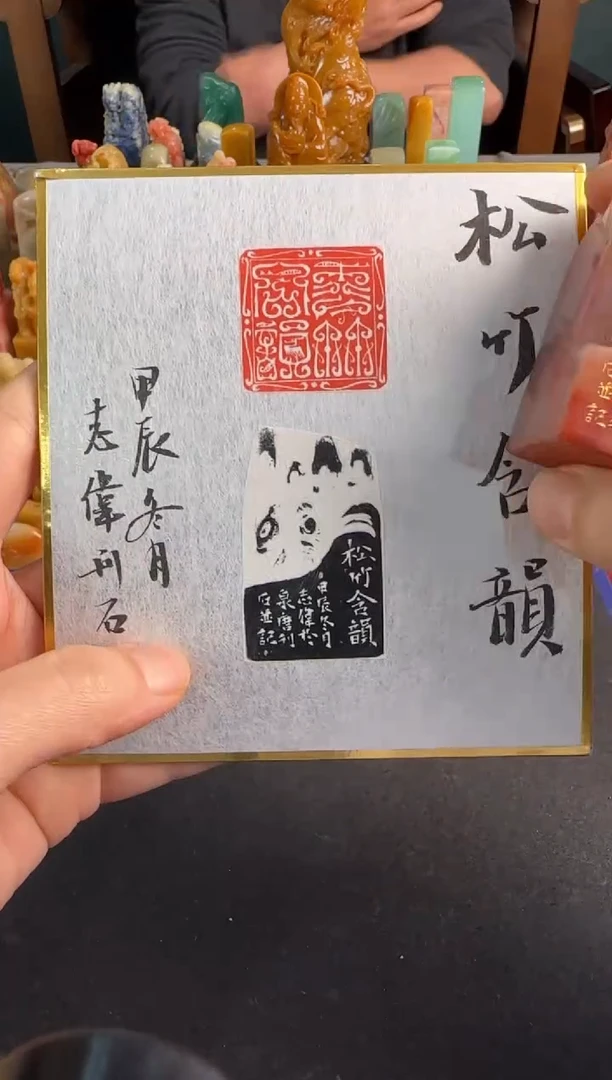 松竹含韻
松竹含韻
甲辰冬月
志偉於
泉唐刊
石並記
甲辰冬月
志偉刊石
石並記